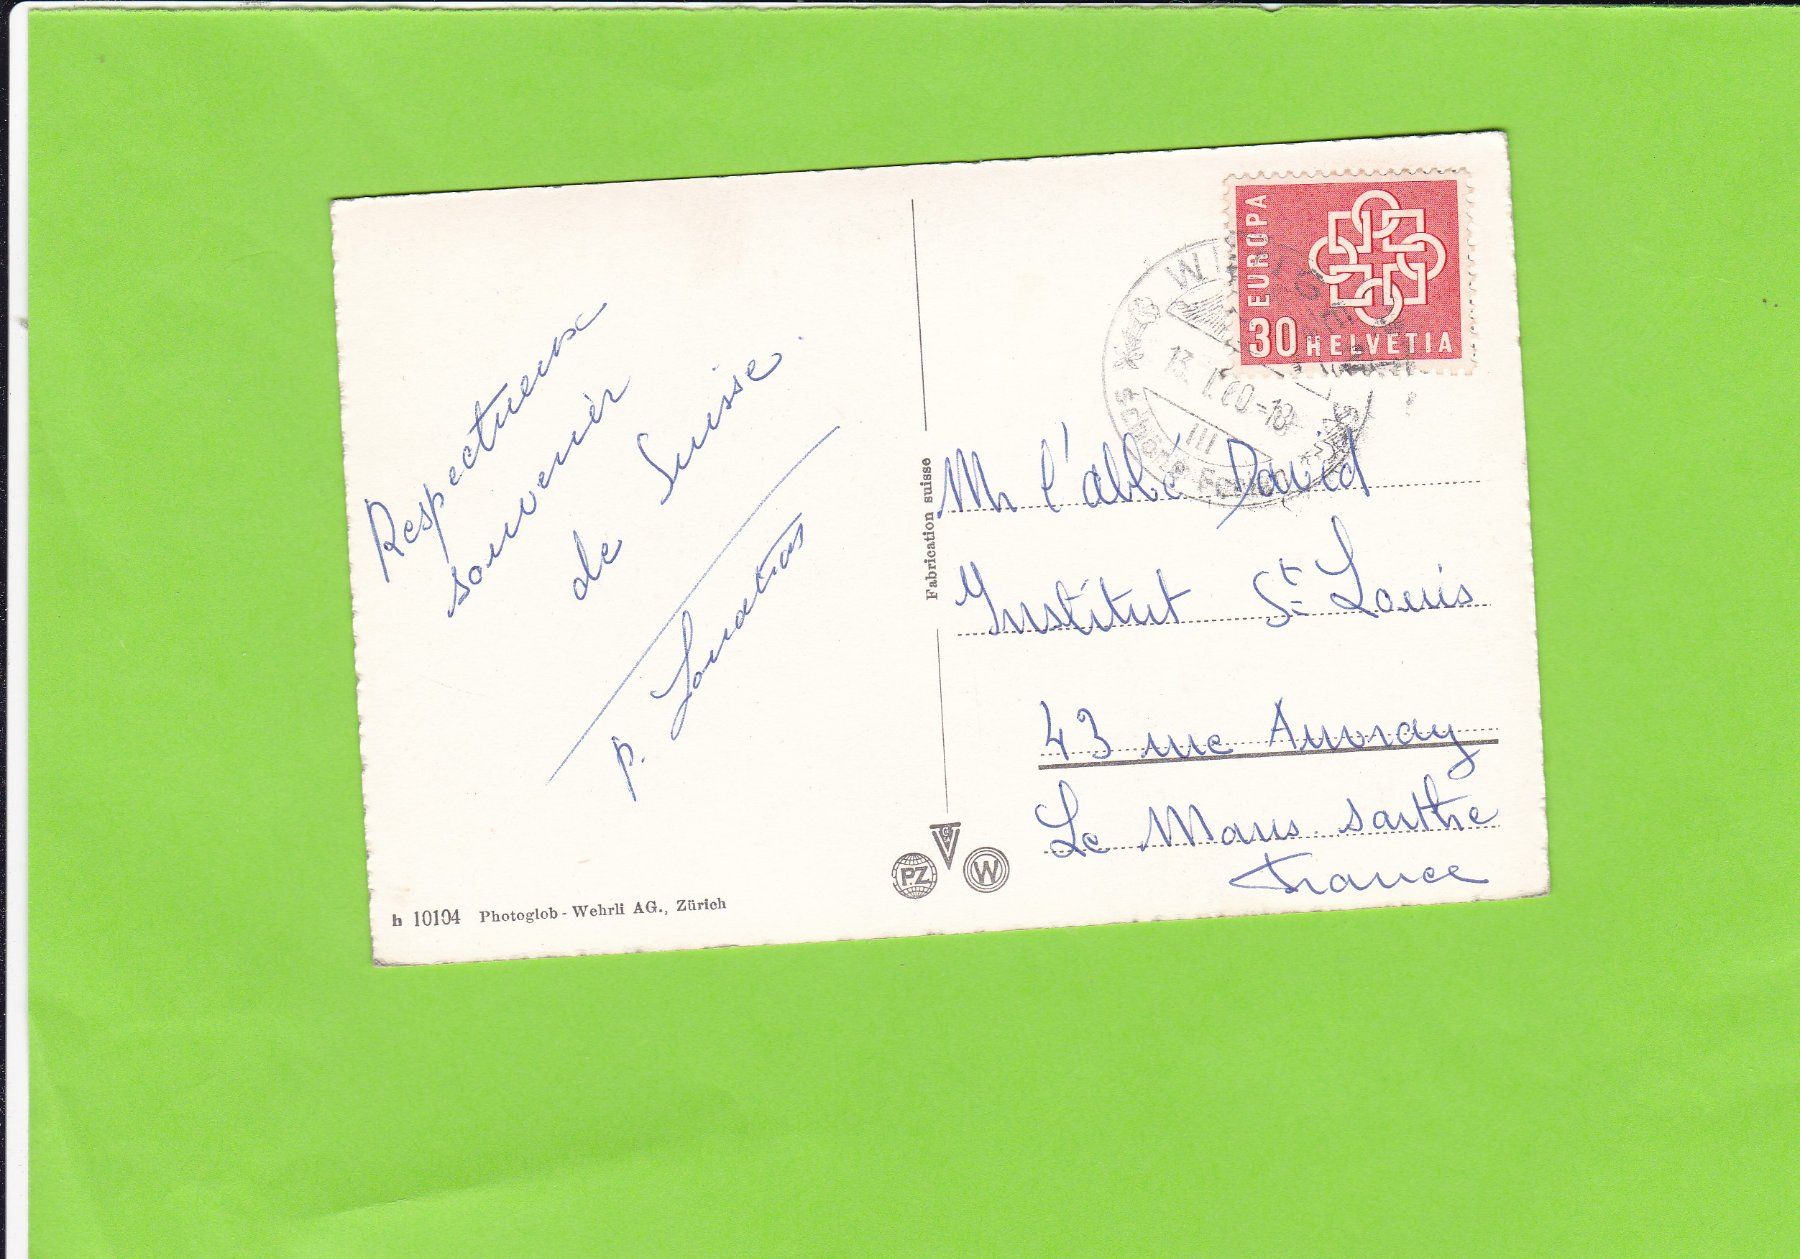 Respectueux
souvenir
de Suisse.
h 10104 Photoglob-Wehrli AG., Zürich
Fabrication suisse
PZ
W
EUROPA
30 HELVETIA
13. I. 60-18
III
Mr l'abbé David
Institut St Louis
43 rue Auvray
Le Mans. Sarthe
France